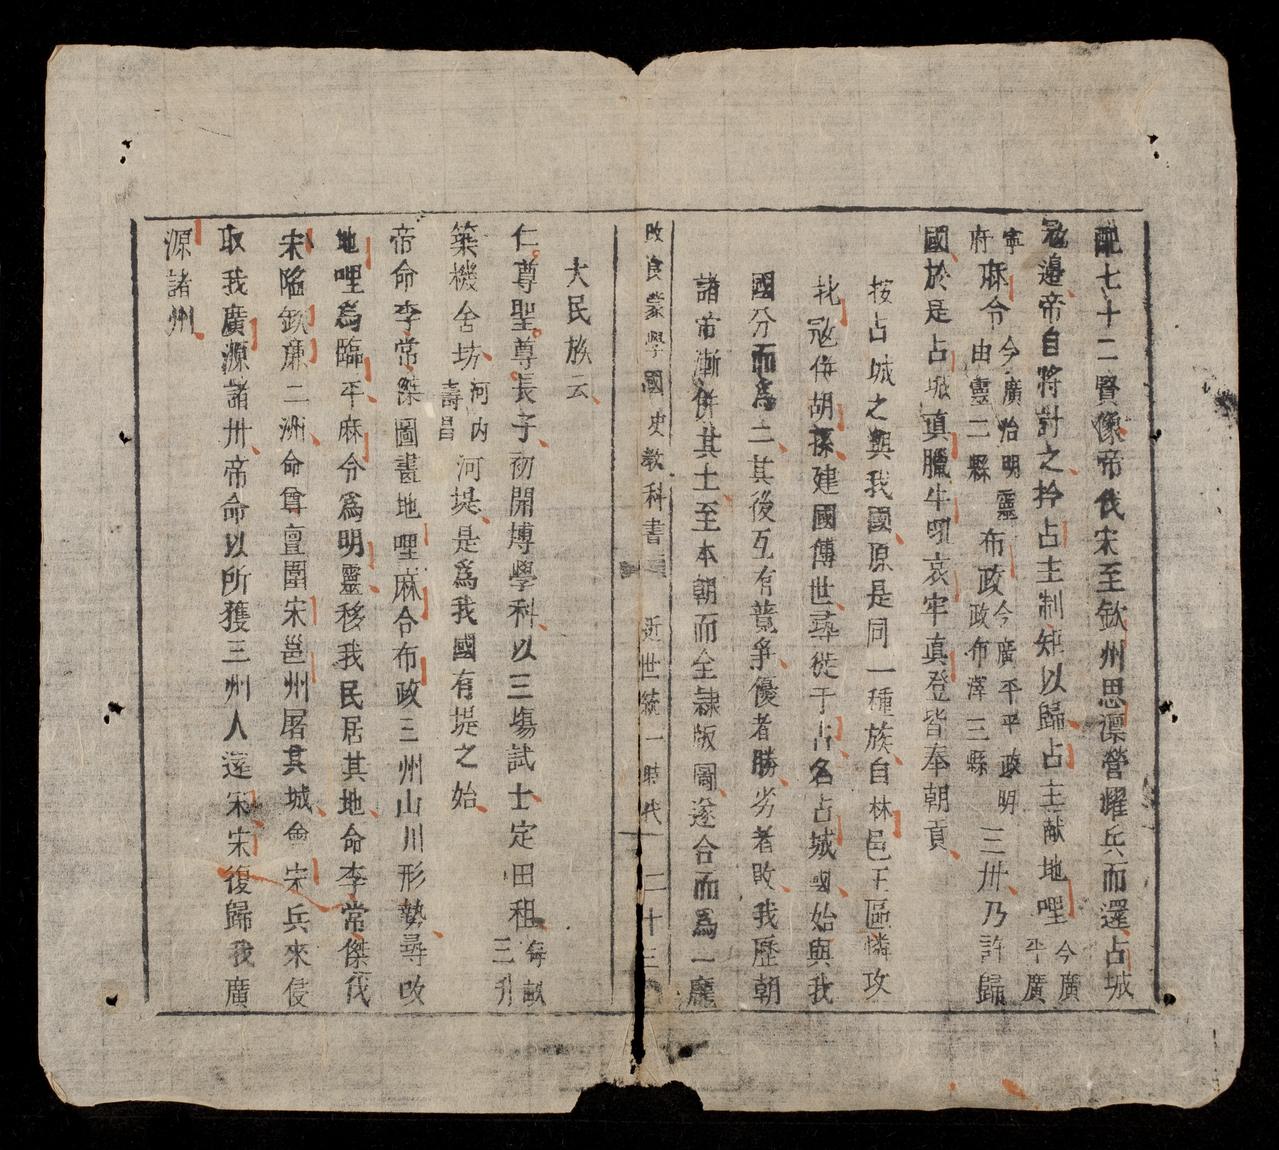 配七十二賢像帝伐宋至欽州思凜營耀兵而還占城
冦邉帝自將討之擒占主制矩以歸占主献地哩今廣平廣
寧府麻令今廣治明靈由靈二縣布政今廣平平政明政布澤三縣三州乃許歸
國於是占城真臘牛吼哀牢真登皆奉朝貢
按占城之與我國原是同一種族自林邑王區憐攻
玭冦侮胡孫建國傳世尋徙于占名占城國始與我
國分而爲二其後互有競爭優者勝劣者敗我歷朝
諸帝漸併其土至本朝而全隷版圖遂合而爲一龐
改良蒙學國史教科書 近世統一時代 二十三
大民族云
仁尊聖尊長子初開博學科以三塲試士定田租每畝三升
築機舍坊河内壽昌河堤是爲我國有堤之始
帝命李常傑圖畫地哩麻令布政三州山川形勢尋改
地哩爲臨平麻令爲明靈移我民居其地命李常傑伐
宋陷欽廉二洲命尊亶圍宋邕州屠其城會宋兵來侵
取我廣源諸州帝命以所獲三州人還宋宋復歸我廣
源諸州